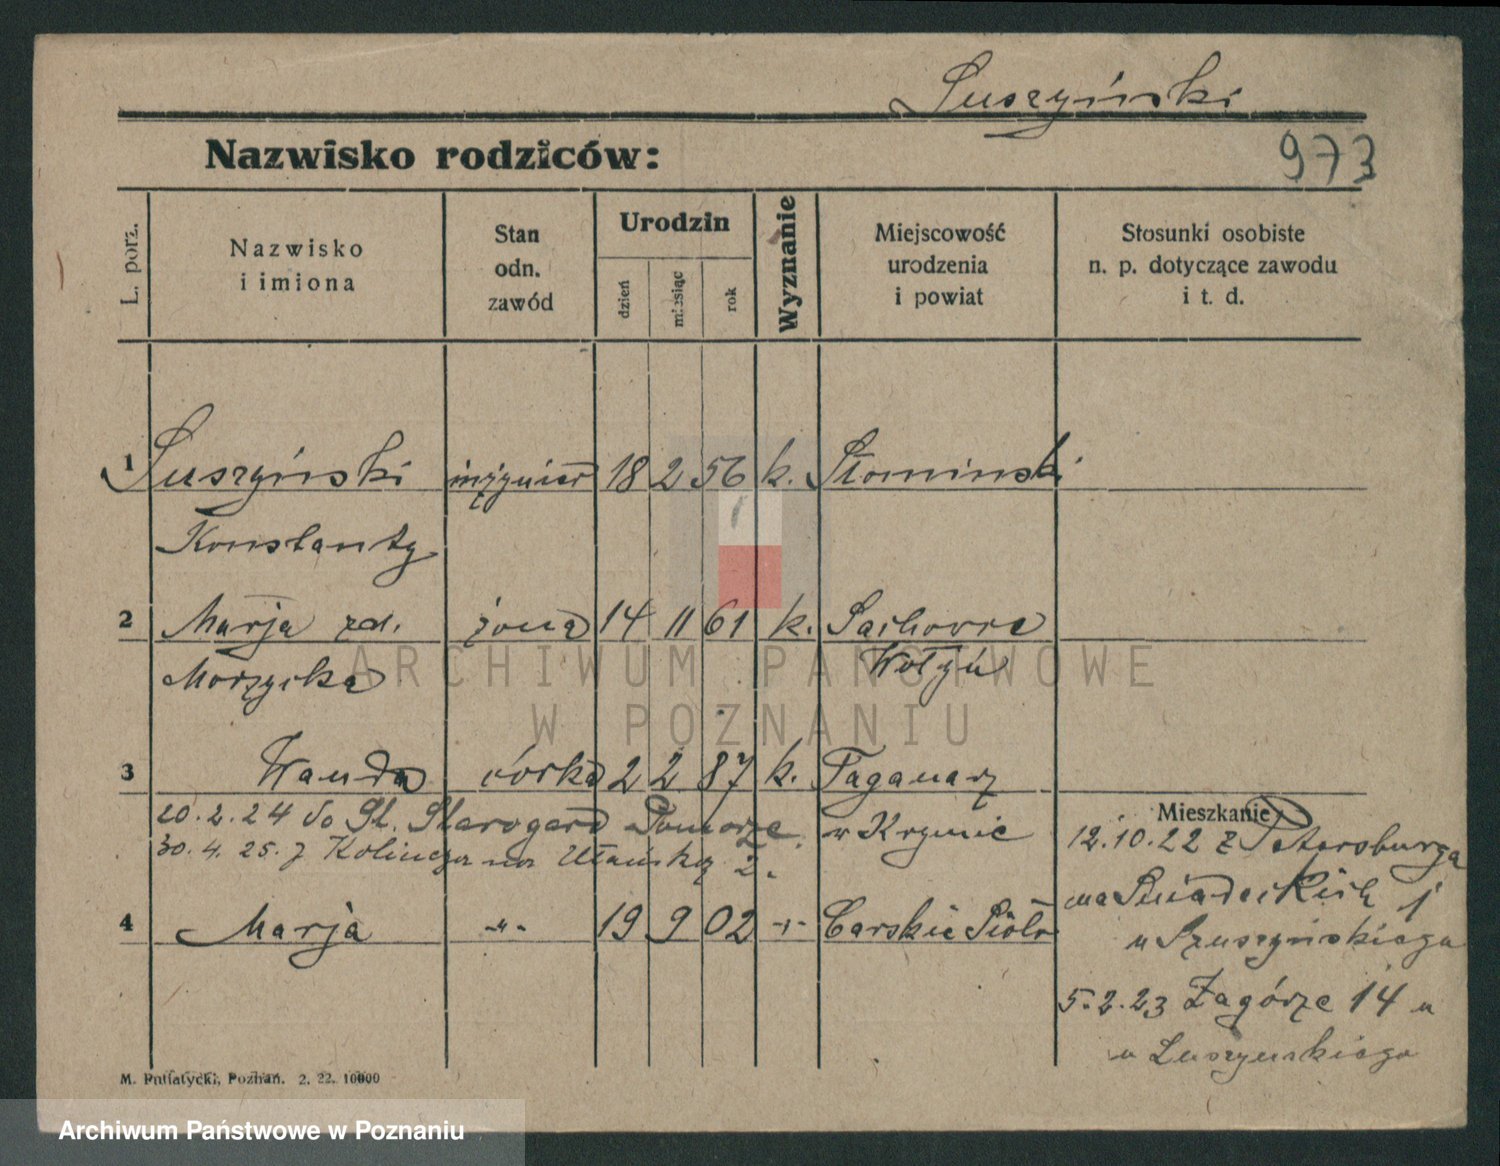 Suszyński
973
Nazwisko rodziców:
L. porz.
Nazwisko
i imiona
Stan
odn.
zawód
Urodzin
dzień
miesiąc
rok
Wyznanie
Miejscowość
urodzenia
i powiat
Stosunki osobiste
n. p. dotyczące zawodu
i t. d.
1 Suszyński inżynier 18 2 56 k. Słominski
Konstanty
2 Marja zd. żona 14 11 61 k. Sachowce
Morzycka Wołyń
3 Wanda córka 2 2 87 k. Taganarz
20.2.24 do St. Starogard Pomorze. w Krymie
30.4.25. z na Ułańską 2.
4 Marja -"- 19 9 02 -"- Carskie Sioło
Mieszkanie
12.10.22 z Petersburga
na Śniadeckich
u Szuszyńskiego
5.2.23 Zagórze 14 u
u Luszynskiego
M. Putiatycki, Poznań. 2. 22. 10000
ARCHIWUM PAŃSTWOWE
W POZNANIU
Archiwum Państwowe w Poznaniu